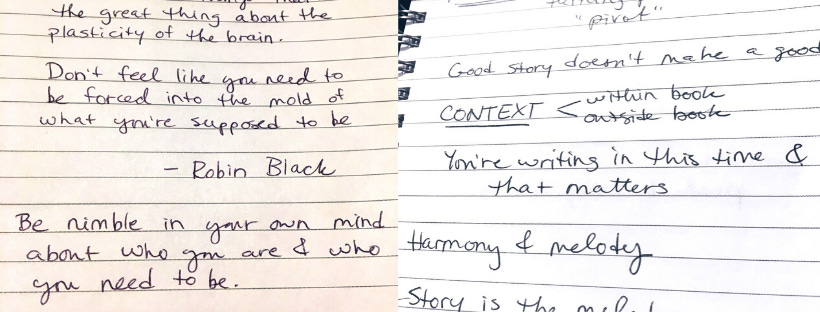 the great thing about the
plasticity of the brain.
Don't feel like you need to
be forced into the mold of
what you're supposed to be
— Robin Black
Be nimble in your own mind
about who you are & who
you need to be.
"pivot"
Good story doesn't make a good
CONTEXT < within book
outside book
You're writing in this time &
that matters
Harmony & melody
Story is the